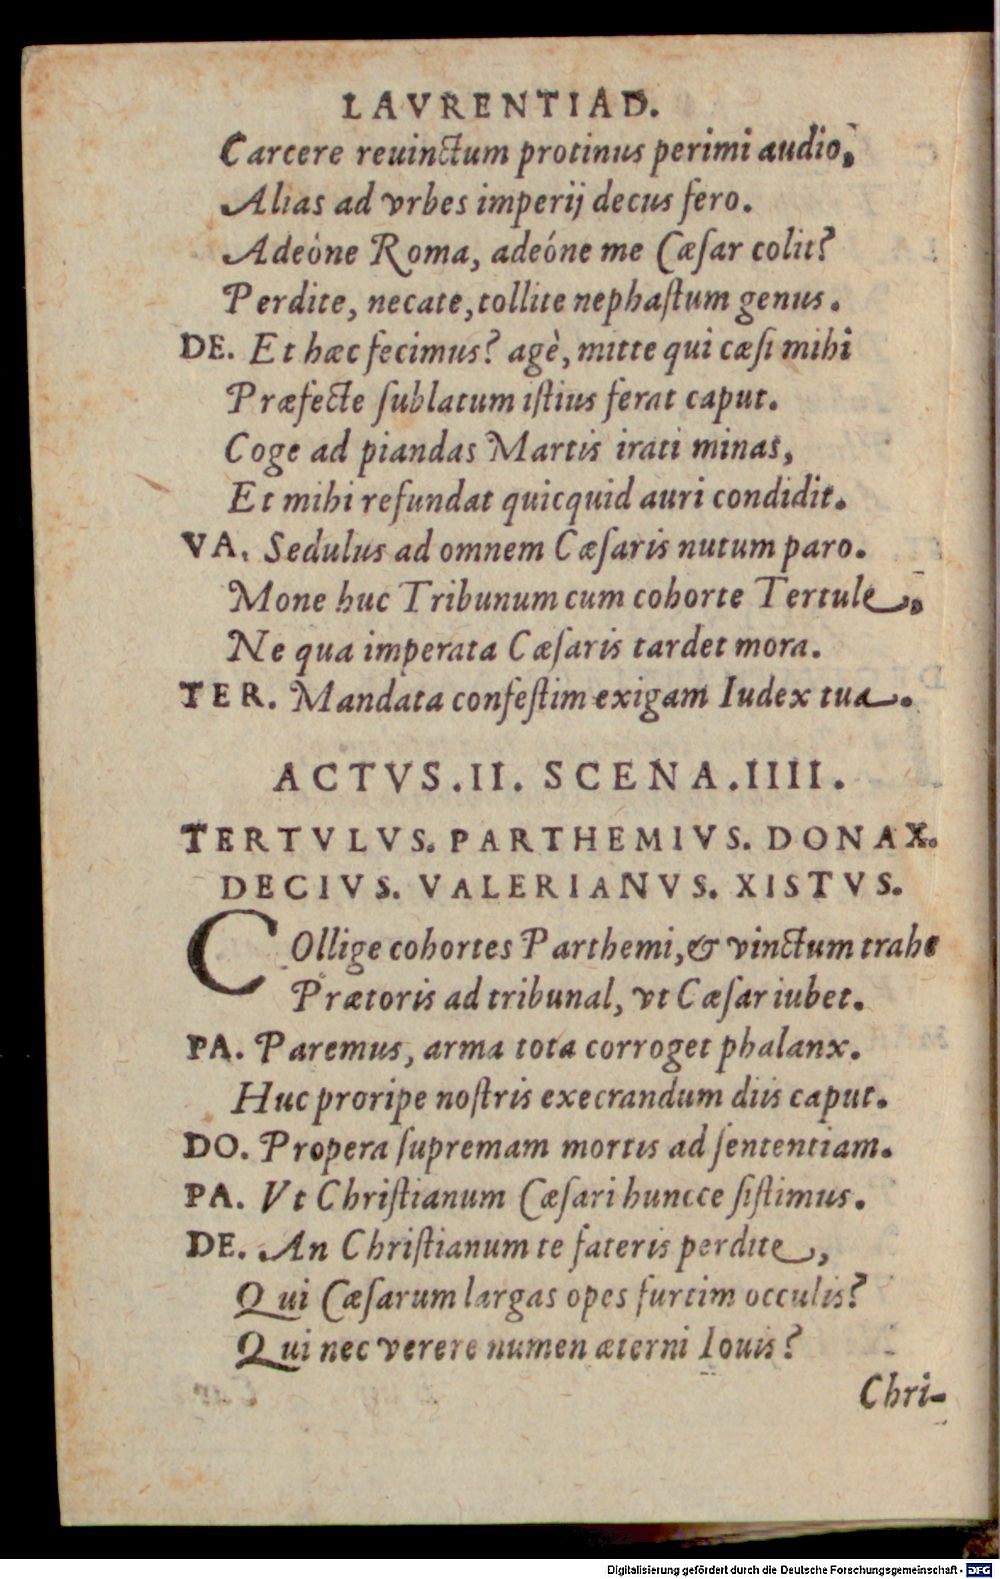 LAVRENTIAD.
Carcere reuinctum protinus perimi audio,
Alias ad vrbes imperij decus fero.
Adeóne Roma, adeóne me Cæſar colit?
Perdite, necate, tollite nephaſtum genus.
DE. Et hæc fecimus? agè, mitte qui cæſi mihi
Præfecte ſublatum iſtius ferat caput.
Coge ad piandas Martis irati minas,
Et mihi refundat quicquid auri condidit.
VA. Sedulus ad omnem Cæſaris nutum paro.
Mone huc Tribunum cum cohorte Tertule,
Ne qua imperata Cæſaris tardet mora.
TER. Mandata confeſtim exigam Iudex tua.
ACTVS.II. SCENA.IIII.
TERTVLVS. PARTHEMIVS. DONAX.
DECIVS. VALERIANVS. XISTVS.
COllige cohortes Parthemi, & vinctum trahe
Prætoris ad tribunal, vt Cæſar iubet.
PA. Paremus, arma tota corroget phalanx.
Huc proripe noſtris execrandum diis caput.
DO. Propera ſupremam mortis ad ſententiam.
PA. Vt Chriſtianum Cæſari huncce ſiſtimus.
DE. An Chriſtianum te fateris perdite,
Qui Cæſarum largas opes furtim occulis?
Qui nec verere numen æterni Iouis?
Chri-
Digitalisierung gefördert durch die Deutsche Forschungsgemeinschaft - DFG